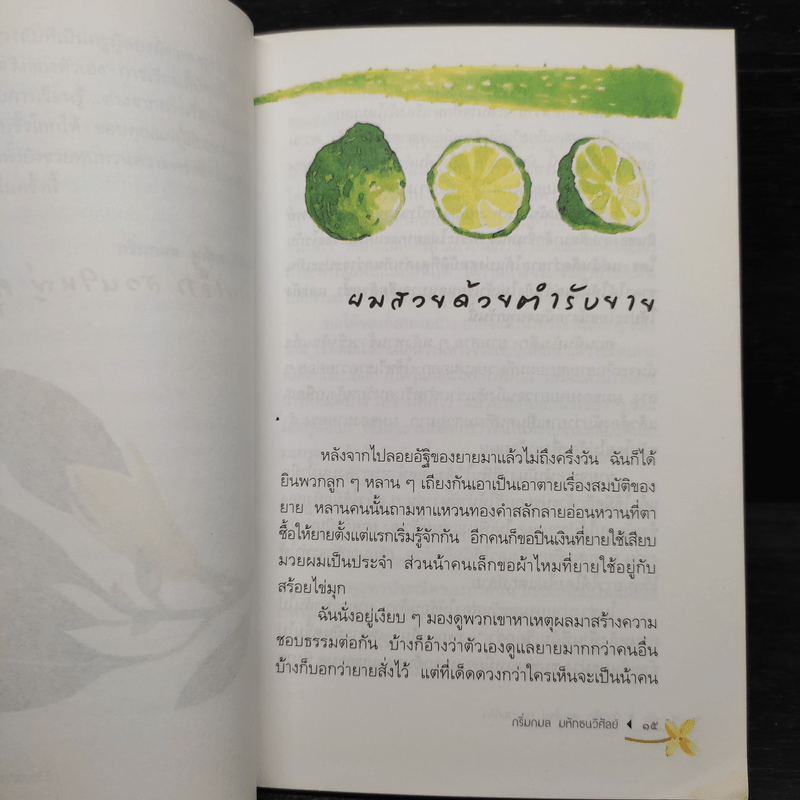 ผมสวยด้วยตำรับยาย
หลังจากไปลอยอัฐิของยายมาแล้วไม่ถึงครึ่งวัน ฉันก็ได้
ยินพวกลูก ๆ หลาน ๆ เถียงกันเอาเป็นเอาตายเรื่องสมบัติของ
ยาย หลานคนนั้นถามหาแหวนทองคำสลักลายอ่อนหวานที่ตา
ซื้อให้ยายตั้งแต่แรกเริ่มรู้จักกัน อีกคนก็ขอปิ่นเงินที่ยายใช้เสียบ
มวยผมเป็นประจำ ส่วนน้าคนเล็กขอผ้าไหมที่ยายใช้อยู่กับ
สร้อยไข่มุก
ฉันนั่งอยู่เงียบ ๆ มองดูพวกเขาหาเหตุผลมาสร้างความ
ชอบธรรมต่อกัน บ้างก็อ้างว่าตัวเองดูแลยายมากกว่าคนอื่น
บ้างก็บอกว่ายายสั่งไว้ แต่ที่เด็ดดวงกว่าใครเห็นจะเป็นน้าคน
กริ่มกมล มหัทธนวิศัลย์ ๑๕